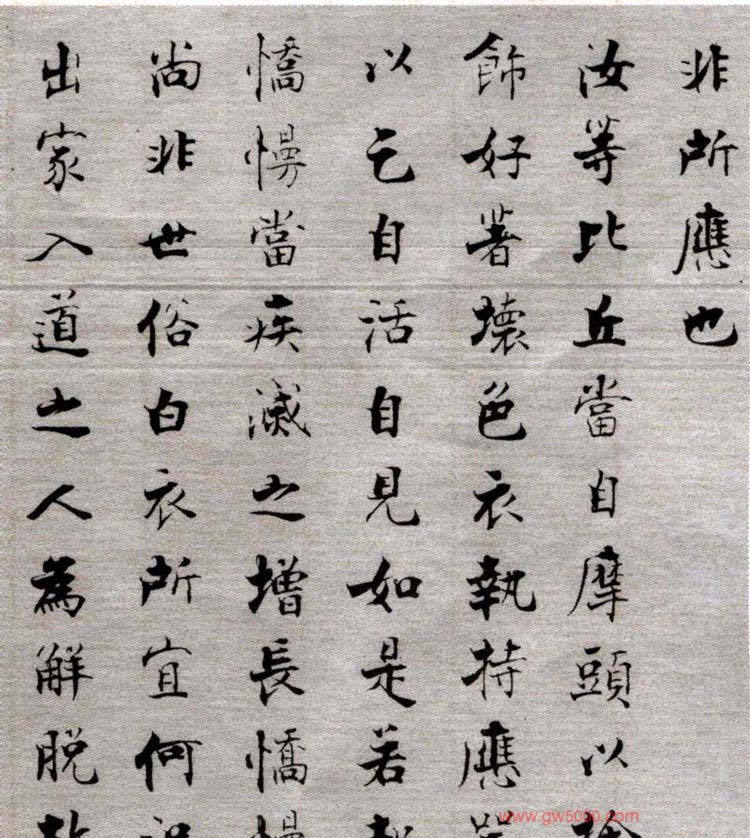 非所應也
汝等比丘當自摩頭以
飾好著壞色衣執持應
以乞自活自見如是若
憍慢當疾滅之增長憍
尚非世俗白衣所宜何
出家入道之人為解脫
www.gw5000.com